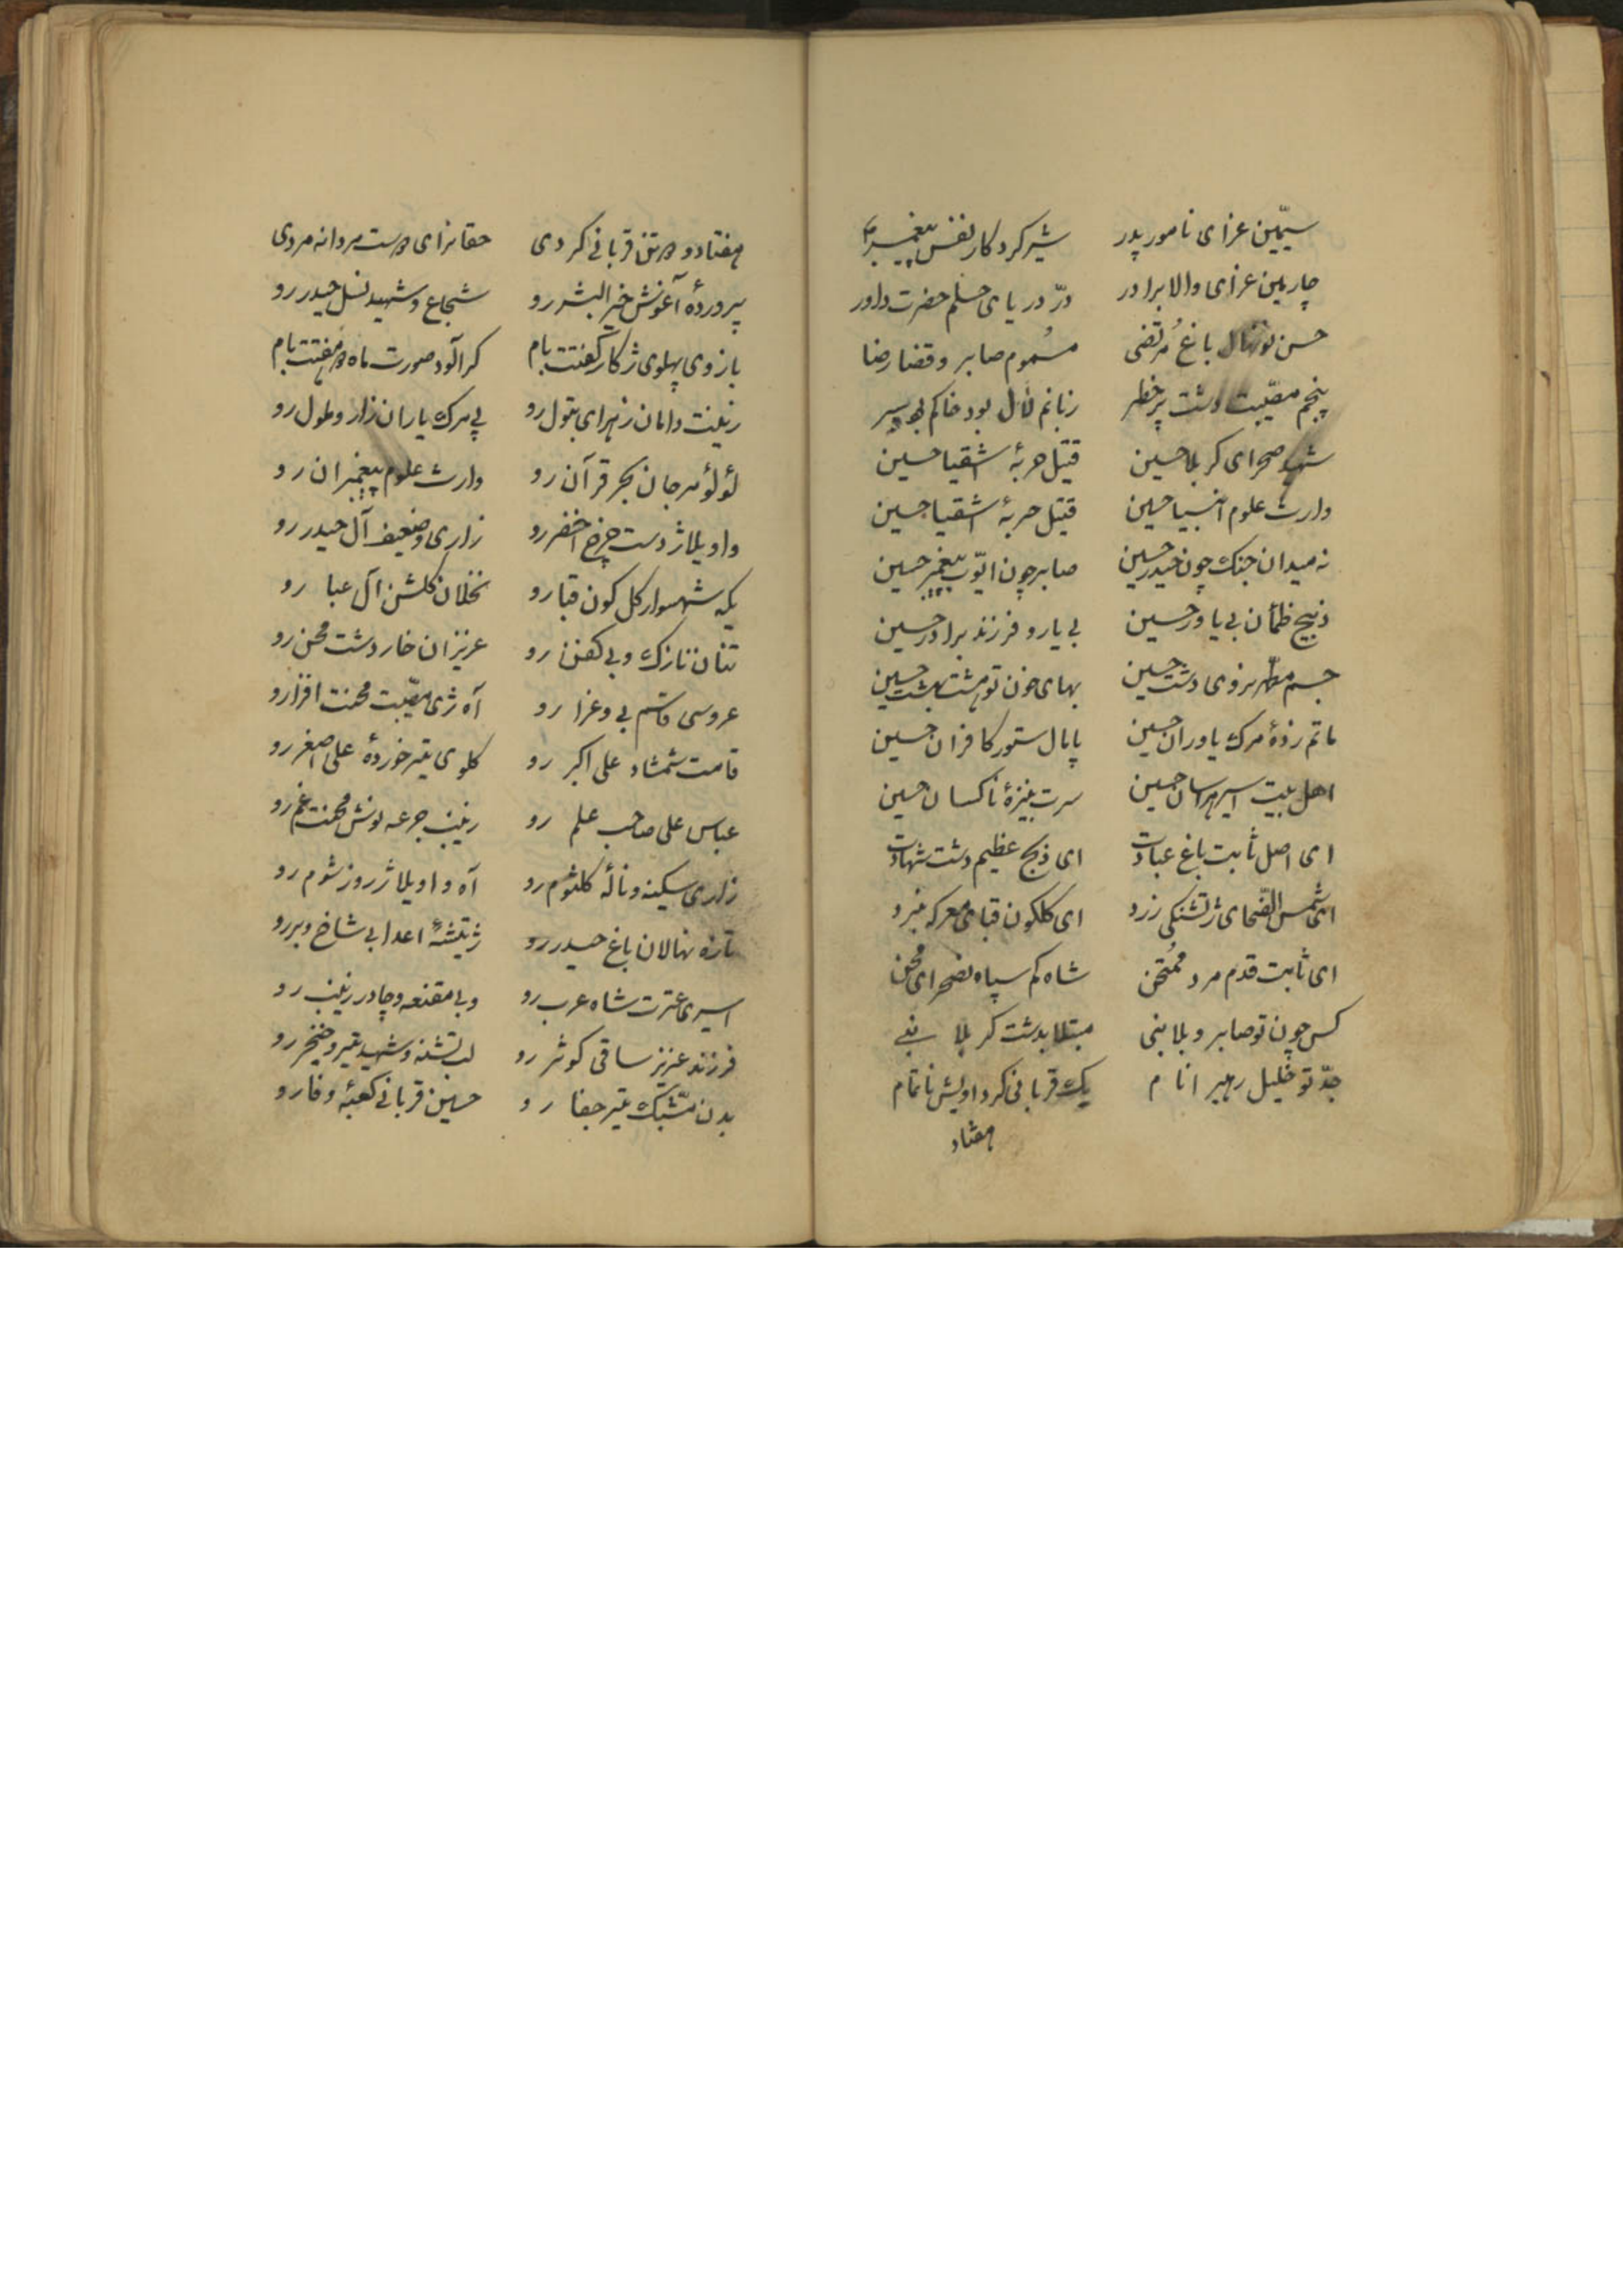 سیّمین عزای نامور پدر شیر کردکار نفس پیغمبر
چارمین عزای والا برادر درّ دریای حلم حضرت داور
حسن نونهال باغ مُرتضی مسُموم صابر و قضا رضا
پنجم مصیّبت دشت پر خطر زبانم لال بود خاکم بسر
شهید صحرای کربلا حسین قتیل حربهٔ اشقیا حسین
وارث علوم انبیا حسین قتیل حربهٔ اشقیا حسین
نه میدان جنک چون حیدر حسین صابر چون ایّوب پیغمبر حسین
ذبیح ظمأن بی یاور حسین بی یار و فرزند برادر حسین
جسم مطهر نروی دشت حسین بهای خون تو هشت بهشت حسین
ماتم زدهٔ مرک یاوران حسین پامال ستور کافران حسین
اهل بیت اسیر هراسان حسین سرت بنیزهٔ ناکسان حسین
ای اصل ثابت باغ عبادت ای ذبح عظیم دشت شهادت
ای شمس الضّحای ژ تشنکی زرد ای کلکون قبای معرکه نبرد
ای ثابت قدم مرد مُمتحن شاه کم سپاه نصحرای محن
کس چون تو صابر و بلا بنی مبتلا بدشت کربلا بنی
جدّ تو خلیل رهبر انام یک قربانی کرد اویش ناتمام
هفتاد
هفتاد و دو تن قربانی کردی حقا نرای دوست مردانه مردی
پروردهٔ آغوش خیر البشر رو شجاع و شهید نسل حیدر رو
بازوی پهلوی ژ کار کفتت بام کرآلود صورت ماه دو هفتت بام
زینت دامان زهرای بتول رو پی مرک یاران زار و ملول رو
لؤلؤ مرجان بحر قرآن رو وارث علوم پیغمبران رو
واویلا ژ دست چرخ اخضر رو زاری و ضعیف آل حیدر رو
یکه شهسوار کل کون قبا رو نخلان کلشن آل عبا رو
تنان نازک و بی کفن رو عزیزان خار دشت محن رو
عروسی قاسم بی و عزا رو آه ژی مصیّبت محنت افزا رو
قامت شمشاد علی اکبر رو کلوی تیر خوردهٔ علی اصغر رو
عباس علی صاحب علم رو زینب جرعه نوش محنت غم رو
زاری سکینه و نالهٔ کلثوم رو آه و اویلا ژ روز شوم رو
تازه نهالان باغ حیدر رو ژ تیشهٔ اعدا بی شاخ و بر رو
اسیری عترت شاه عرب رو و بی مقنعه و چادر زینب رو
فرزند عزیز ساقی کوثر رو لب تشنه و شهید تیر و خنجر رو
بدن مشّبک تیر جفا رو حسین قربانی کعبهٔ وفا رو